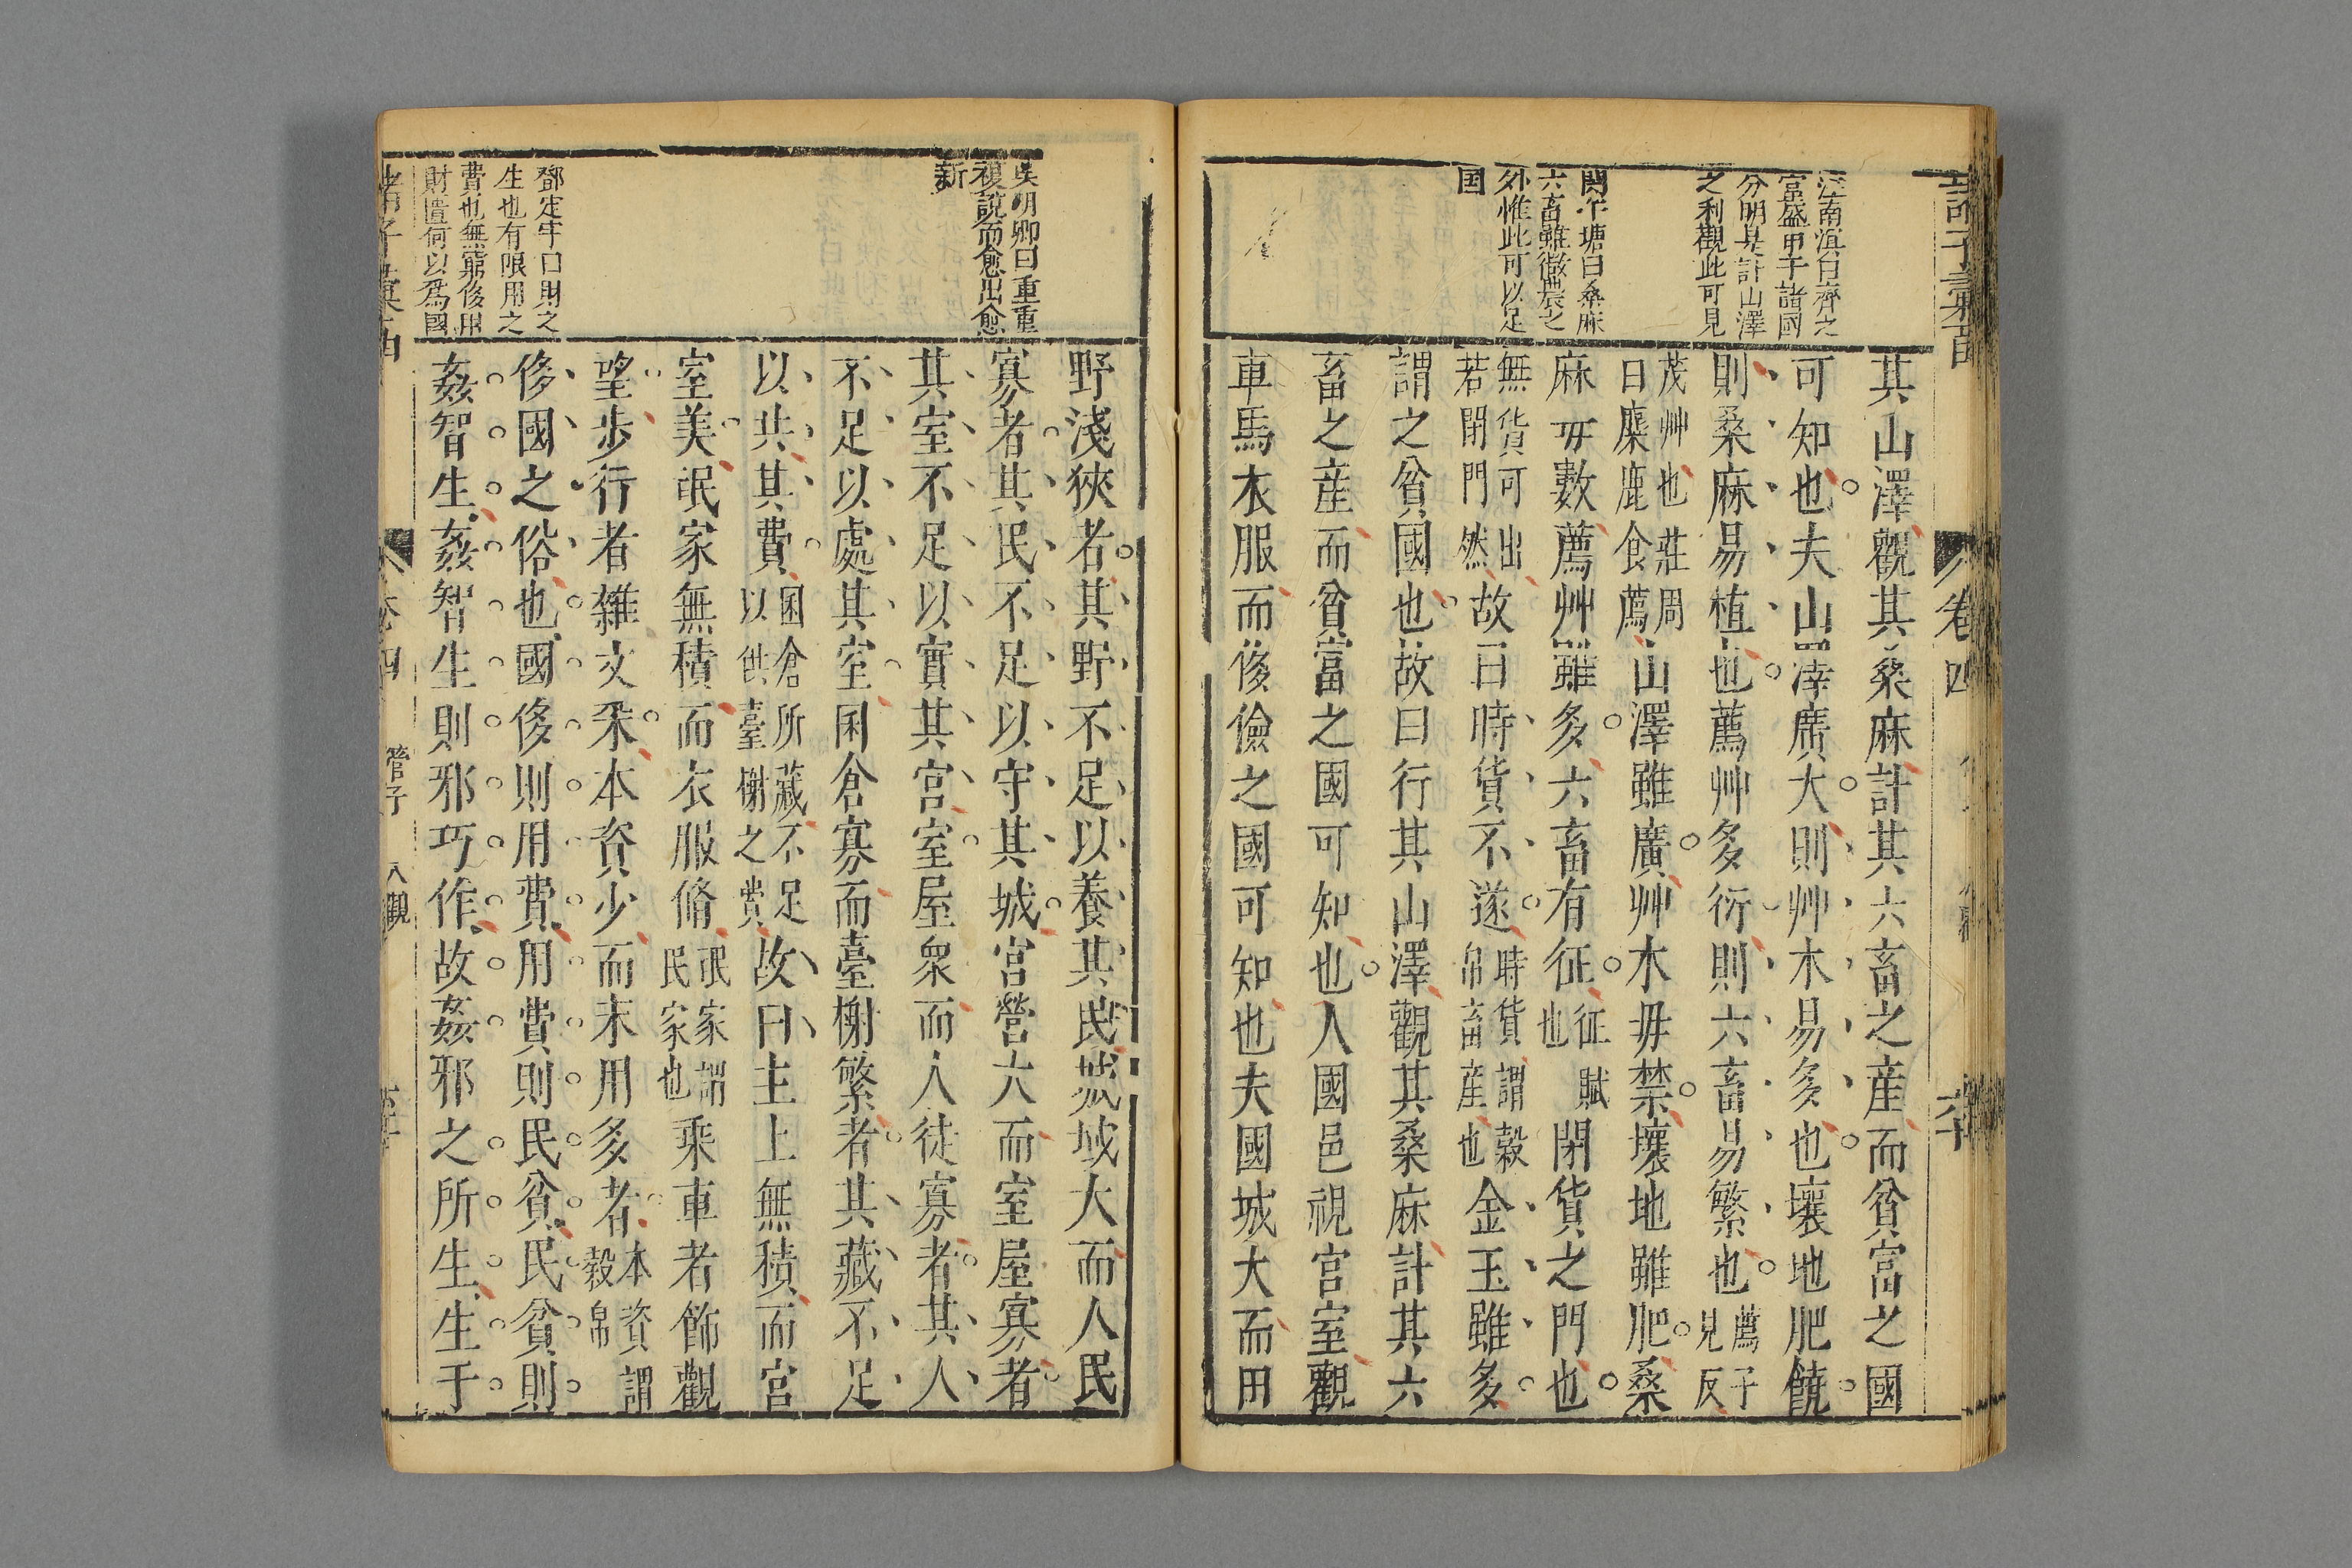 江南滇曰齊之
富盛甲于諸國
分明是計山澤
之利觀此可見
六畜雖微農之
外惟此可以足
国
其山澤觀其桑麻計其六畜之産而貧富之國
可知也夫山澤廣大則艸木易多也壤地肥饒
則桑麻易植也薦艸多衍則六畜易繁也薦子見反
茂艸也莊周曰麋鹿食薦山澤雖廣艸木毋禁壤地雖肥桑
麻毋數薦艸雖多六畜有征征賦也閉貨之門也
無貨可出若閉門然故曰時貨不遂時貨謂穀帛畜産也金玉雖多
謂之貧國也故曰行其山澤觀其桑麻計其六
畜之産而貧富之國可知也入國邑視宮室觀
車馬衣服而侈儉之國可知也夫國城大而田
卷四
吳明卿曰重重
複說而愈出愈
新
鄧定宇曰財之
生也有限用之
費也無窮侈用
財匱何以爲國
野淺狹者其野不足以養其民城域大而人民
寡者其民不足以守其城宮營大而室屋寡者
其室不足以實其宮室屋衆而人徒寡者其人
不足以處其室囷倉寡而臺榭繁者其藏不足
以共其費囷倉所藏不足以供臺榭之費故曰主上無積而宮
室美氓家無積而衣服脩氓家謂民家也乘車者飾觀
望步行者雜文采本資少而末用多者本資謂穀帛
侈國之俗也國侈則用費用費則民貧民貧則
姦智生姦智生則邪巧作故姦邪之所生生于
管子
八觀